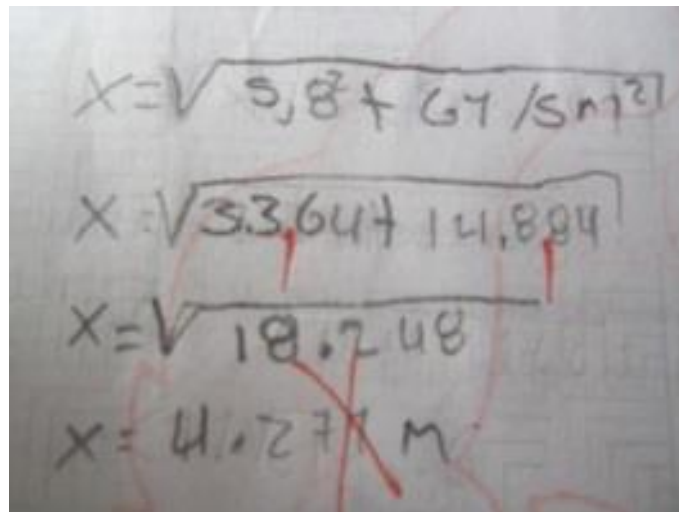 X=√5,8²+
X=√3.3,64+14,884
X=√18.248
X=4.27 m